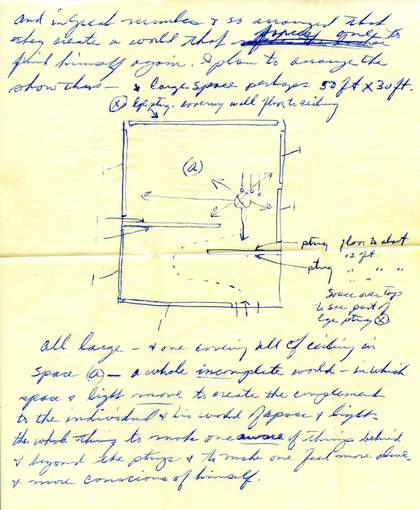 and in great numbers & so arranged that
they create a world that only to
find himself again. I plan to arrange the
show thus — large space perhaps 50 ft x 30 ft.
(X) lge ptng. covering wall floor to ceiling
(a)
ptng floor to about
12 ft.
ptng " " "
Space over top
to see part of
lge ptng (X)
all large — & one covering all of ceiling in
Space (a) — a whole incomplete world — in which
space & light move to create the complement
to the individual & his world of space & light.
The whole thing to make one aware of things behind
& beyond the ptngs & to make one feel more alive
& more conscious of himself.